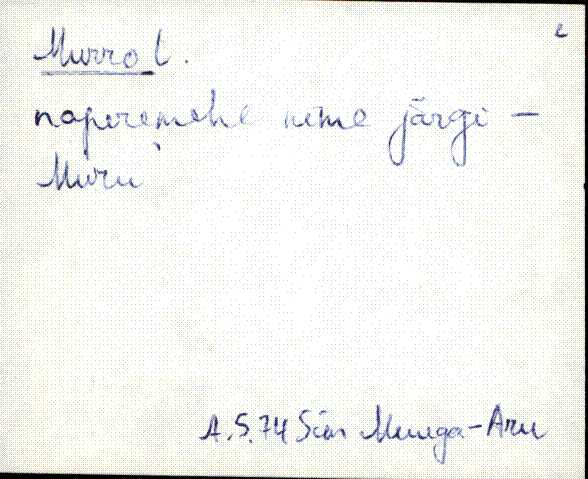 Murro t.
naperemehe nime järgi –
Muru
A.S. 74 Siim Munga-Aru